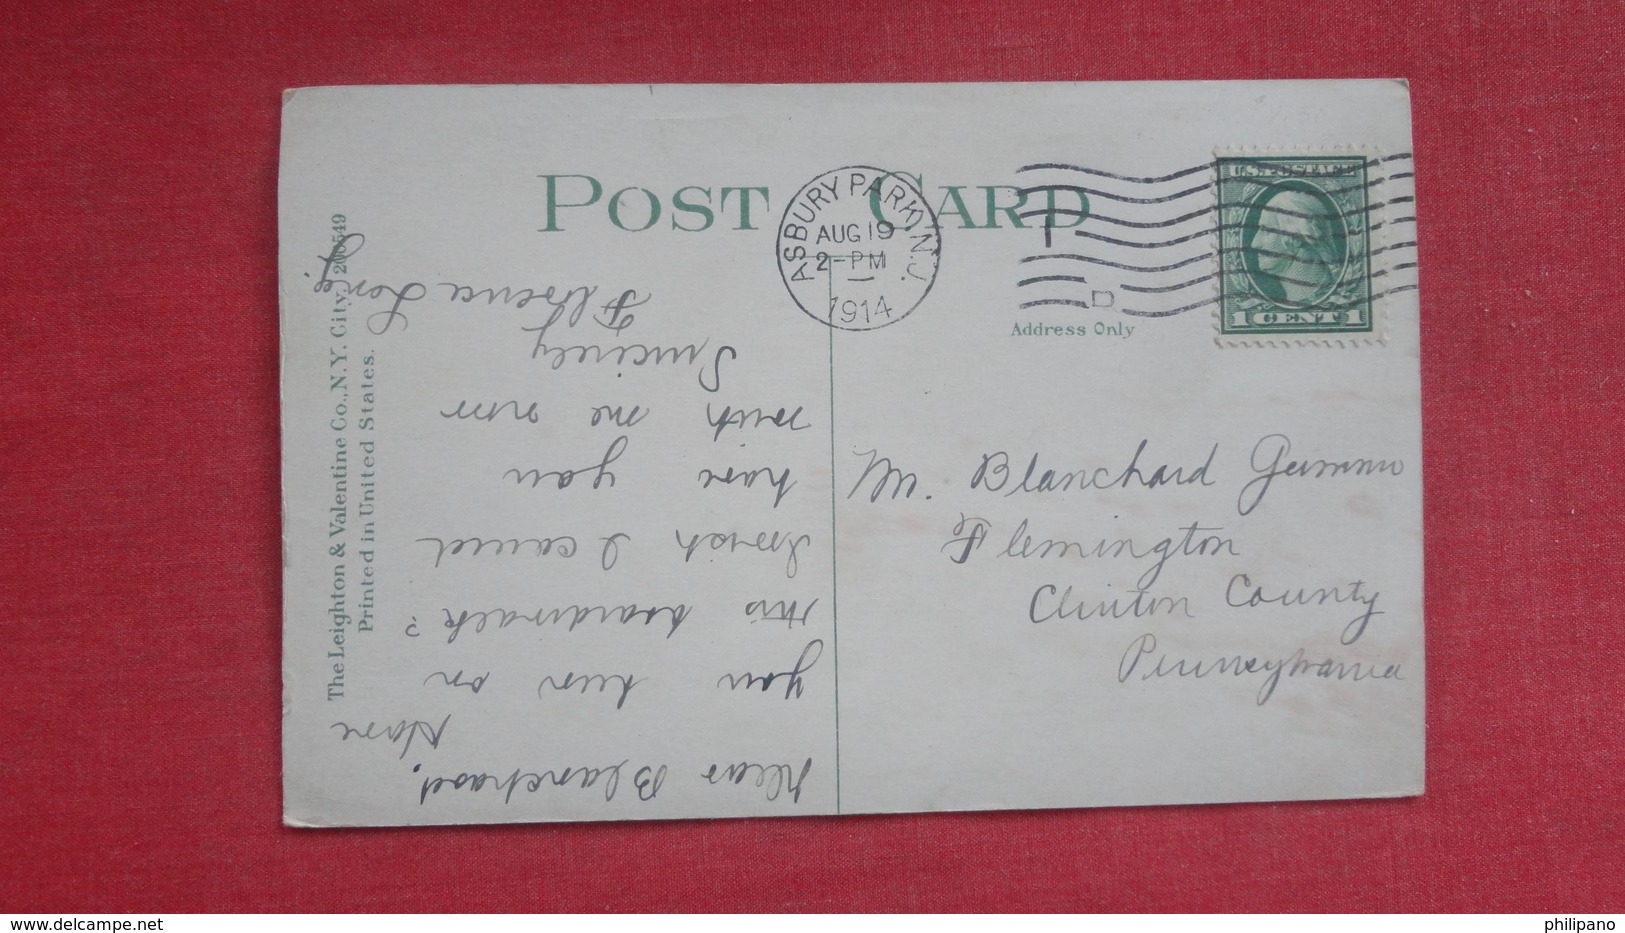 POST CARD
ASBURY PARK, N.J.
AUG 19
2-PM
1914
D
U.S. POSTAGE
1 CENT 1
Address Only
The Leighton & Valentine Co., N.Y. City.
Printed in United States.
Mr. Blanchard
Flemington
Clinton County
Pennsylvania
Dear Blanchard,
Have
you been on
this boardwalk?
I wish I could
have you
with me now
Sincerely
Florence
philipano
delcampe.net